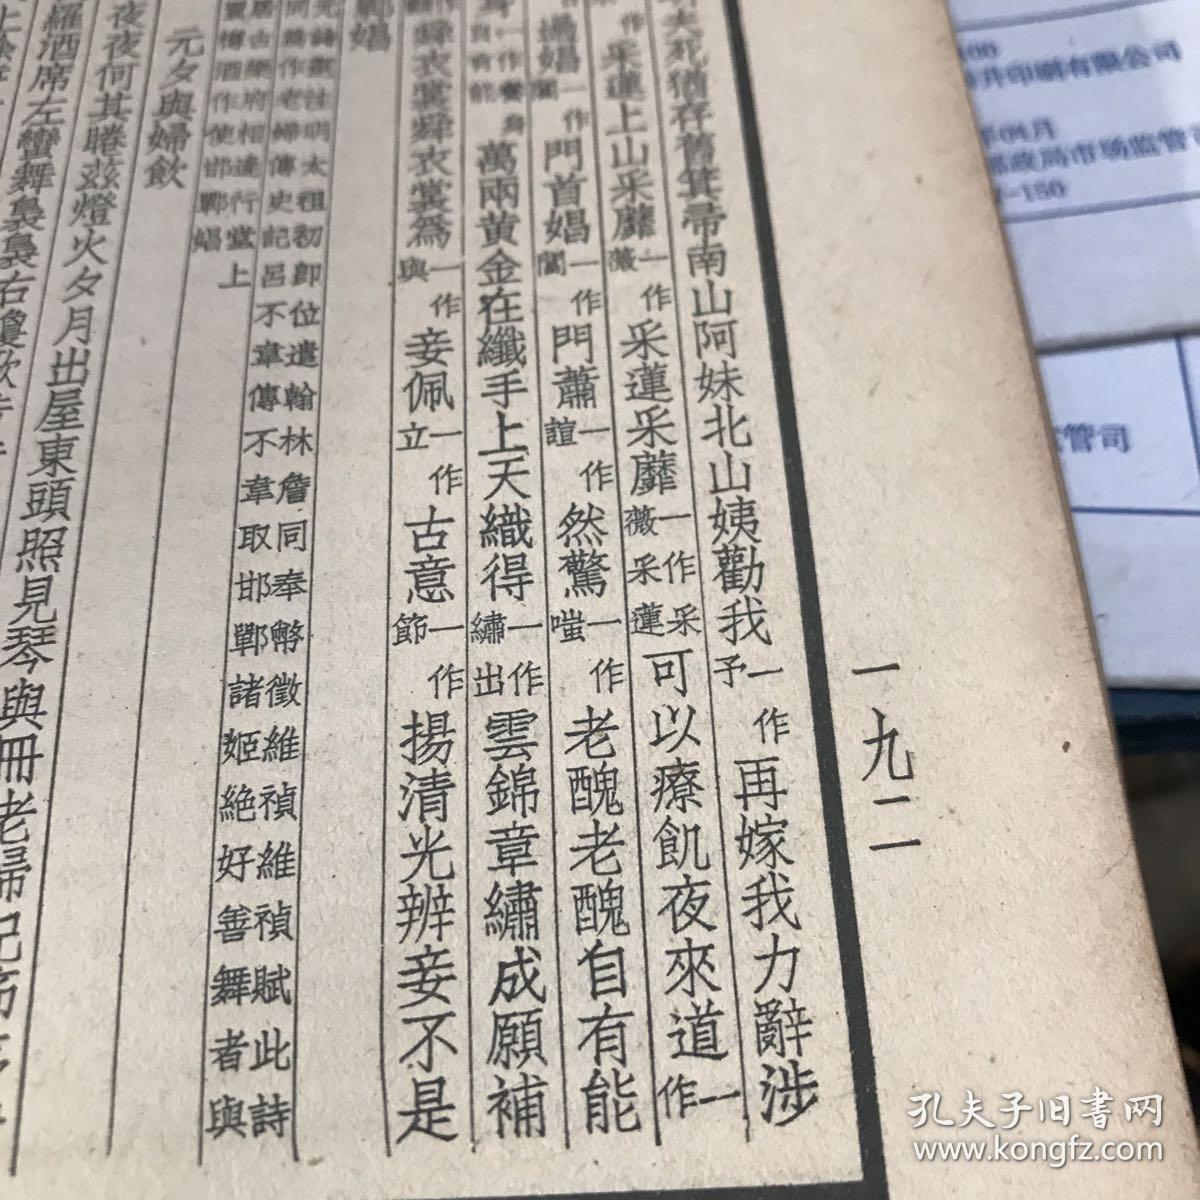 夫死猶存舊箕帚南山阿妹北山姨勸我一作予再嫁我力辭涉
作采蓮上山采蘼一作薇采蓮采蘼一作薇采蓮采可以療飢夜來道一作
過娼一作閶門首娼一作閶門蕭一作諠然驚一作嗤老醜老醜自有能
萬兩黃金在纖手上天織得一作繡出雲錦章繡成願補
舜衣裳舜衣裳爲一作與妾佩一作立古意一作節揚清光辨妾不是
鄲娼
注明太祖初卽位遣翰林詹同奉幣徵維禎維禎賦此詩
作老婦傳史記呂不韋傳不韋取邯鄲諸姬絶好善舞者與
居古樂府相逢行堂上
置樽酒作使邯鄲娼
元夕與婦飲
夜夜何其睠茲燈火夕月出屋東頭照見琴與冊老婦
羅酒席左蠻舞裊裊右瓊歌
一九二
孔夫子旧书网
www.kongfz.com
印刷有限公司
年04月
邮政局市场监管司
-150
管司